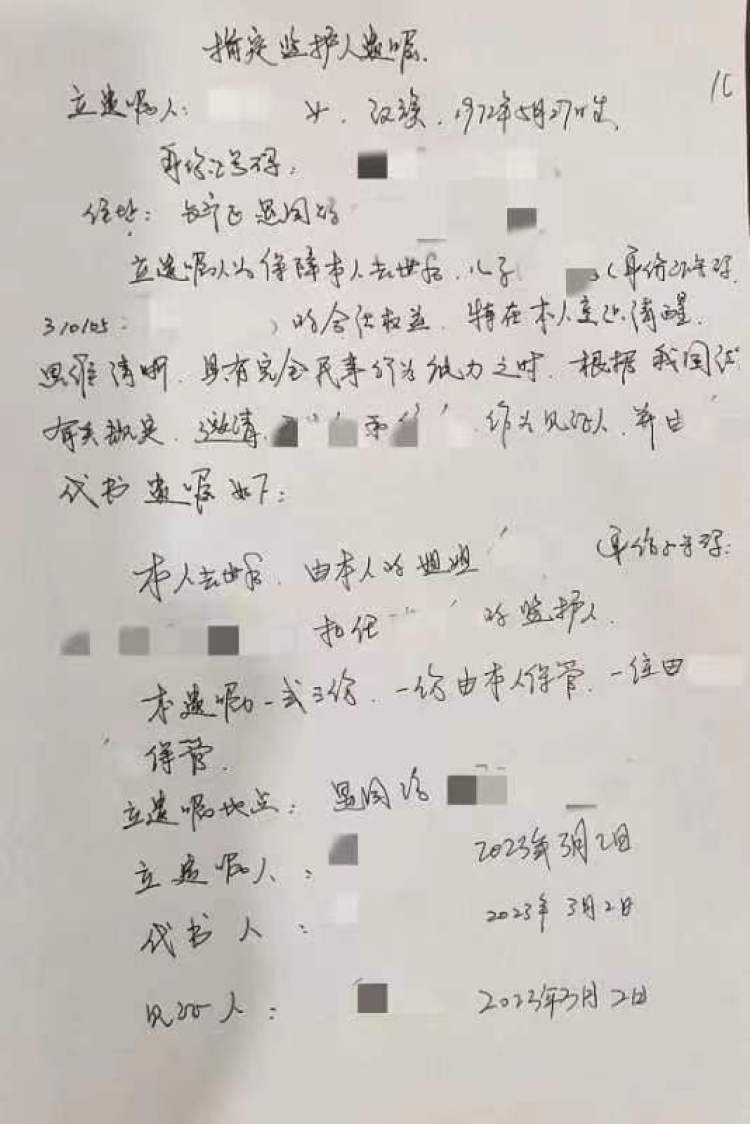 指定监护人遗嘱.
1(
立遗嘱人: 女, 汉族, 1972年5月27日生,
身份证号码:
住址: 长宁区恩国路
立遗嘱人为保障本人去世后, 儿子 (身份证号码
310105: ) 的合法权益, 特在本人意识清醒,
思维清晰, 具有完全民事行为能力之时, 根据我国法
有关规定, 邀请 和 作为见证人, 并由
代书遗嘱如下:
本人去世后, 由本人的姐姐 (身份证号码:
担任 的监护人.
本遗嘱一式 份, 一份由本人保管, 一份由
保管.
立遗嘱地点: 路
立遗嘱人: 2023年3月2日
代书人: 2023年3月2日
见证人: 2023年3月2日